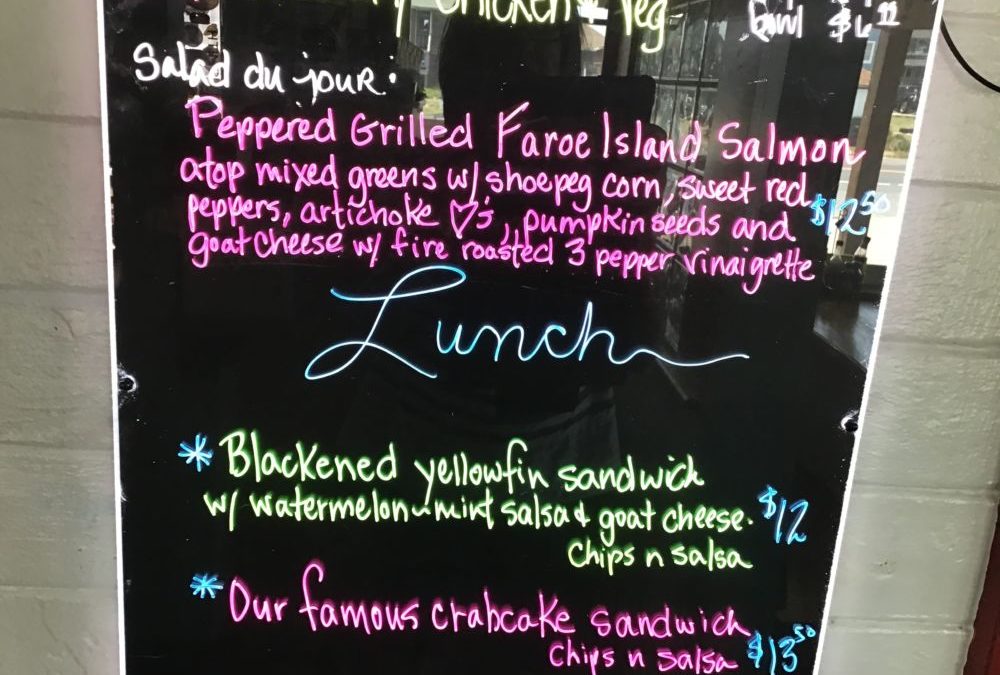 Chicken & Veg
bowl $6
Salad du jour:
Peppered Grilled Faroe Island Salmon
atop mixed greens w/ shoepeg corn, sweet red
peppers, artichoke ♡'s, pumpkin seeds and $12.50
goat cheese w/ fire roasted 3 pepper vinaigrette
Lunch
* Blackened yellowfin sandwich
w/ watermelon-mint salsa & goat cheese. $12
chips n salsa
* Our famous crabcake sandwich
chips n salsa $13.50